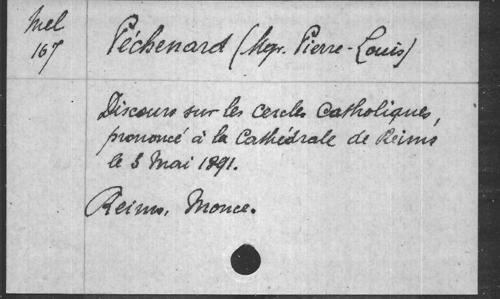 Mel
167
Péchenard (Mgr. Pierre-Louis)
Discours sur les cercles catholiques,
prononcé à la Cathédrale de Reims
le 3 Mai 1891.
Reims, Monce.